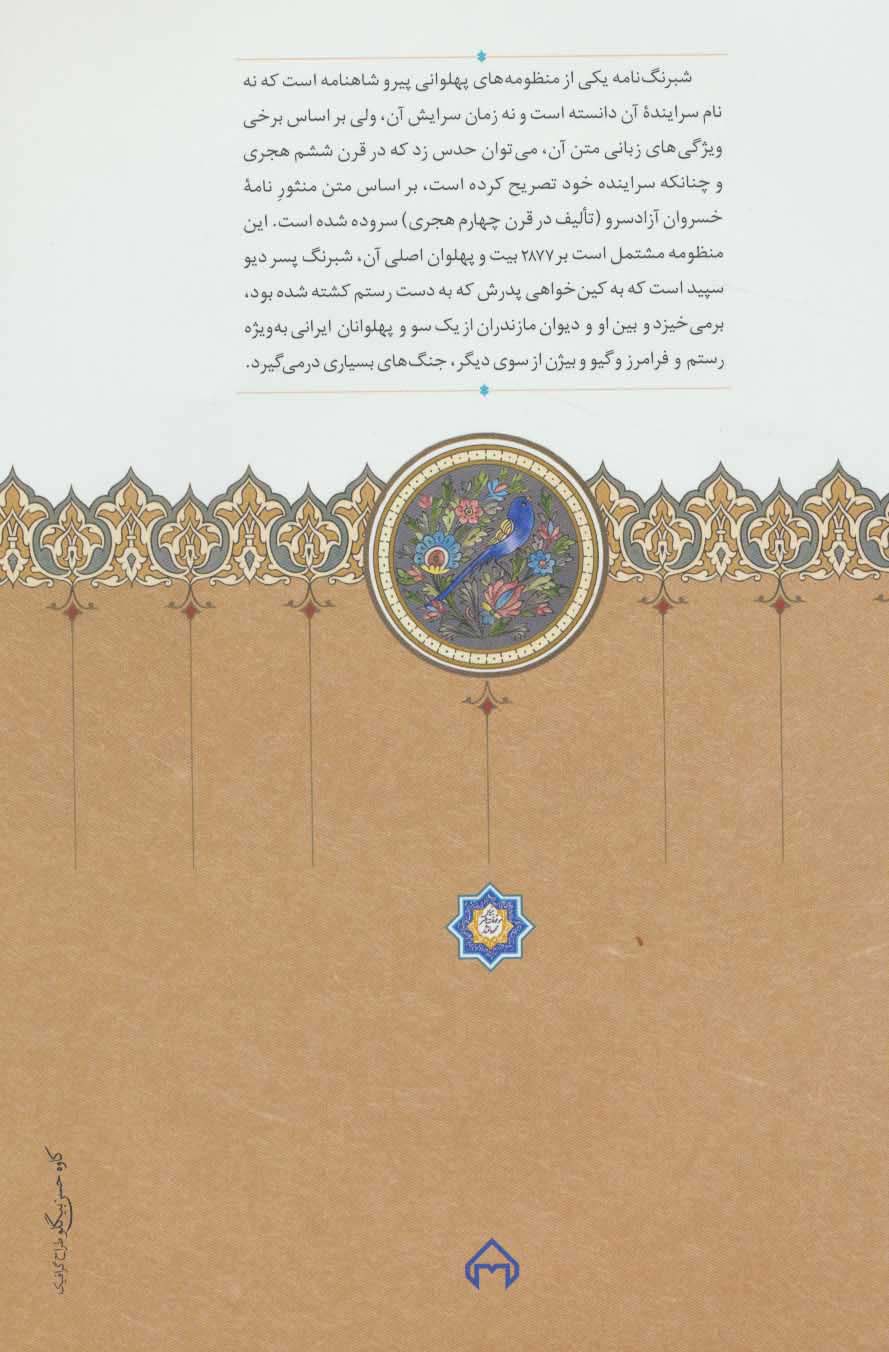 شبرنگ‌نامه یکی از منظومه‌های پهلوانی پیرو شاهنامه است که نه
نام سرایندهٔ آن دانسته است و نه زمان سرایش آن، ولی بر اساس برخی
ویژگی‌های زبانی متن آن، می‌توان حدس زد که در قرن ششم هجری
و چنانکه سراینده خود تصریح کرده است، بر اساس متن منثورِ نامهٔ
خسروان آزادسرو (تألیف در قرن چهارم هجری) سروده شده است. این
منظومه مشتمل است بر ۲۸۷۷ بیت و پهلوان اصلی آن، شبرنگ پسر دیو
سپید است که به کین‌خواهی پدرش که به دست رستم کشته شده بود،
برمی‌خیزد و بین او و دیوان مازندران از یک سو و پهلوانان ایرانی به‌ویژه
رستم و فرامرز و گیو و بیژن از سوی دیگر، جنگ‌های بسیاری درمی‌گیرد.
کاوه حسن‌بیگلو طراح گرافیک